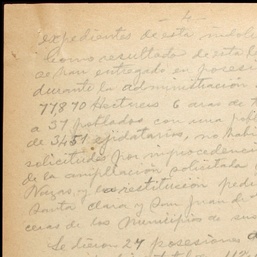 - 4 -
expedientes de esta índole
Como resultado de esta l
se han entregado en poses
durante la administración
77,870 Hectreas 6 aras de t
a 37 poblados con una pobl
de 3451 ejidatarios, no habi
solicitudes por improcedenci
de la ampliación solicitada
Nozas y la restitución pedi
Santa Clara y San Juan d
ceras de los Municipios de sus
Se dieron 27 posesiones d